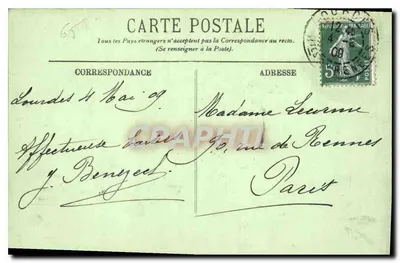 CARTE POSTALE
Tous les Pays étrangers n'acceptent pas la Correspondance au recto.
(Se renseigner à la Poste).
CORRESPONDANCE
ADRESSE
Lourdes 4 Mai 09
Affectueuse
J. Benezech
Madame Lecerme
90, rue de Rennes
Paris
CPAPHIL
5
09